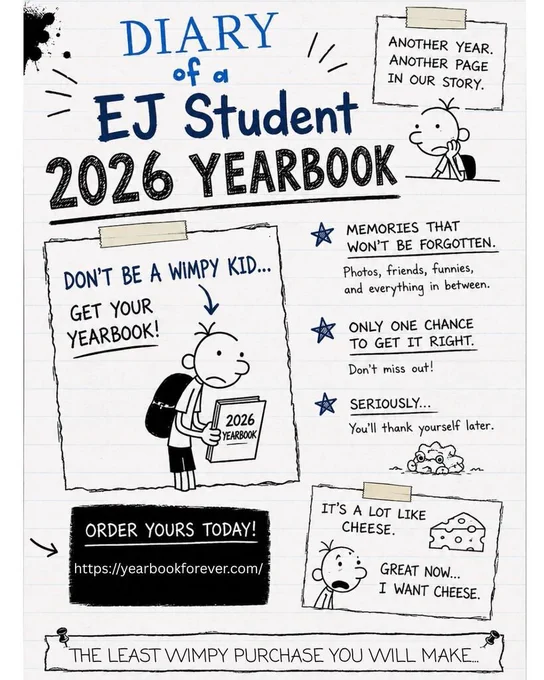 DIARY
of a
EJ Student
2026 YEARBOOK
ANOTHER YEAR.
ANOTHER PAGE
IN OUR STORY.
DON'T BE A WIMPY KID...
GET YOUR
YEARBOOK!
2026
YEARBOOK
MEMORIES THAT
WON'T BE FORGOTTEN.
Photos, friends, funnies,
and everything in between.
ONLY ONE CHANCE
TO GET IT RIGHT.
Don't miss out!
SERIOUSLY...
You'll thank yourself later.
ORDER YOURS TODAY!
https://yearbookforever.com/
IT'S A LOT LIKE
CHEESE.
GREAT NOW...
I WANT CHEESE.
THE LEAST WIMPY PURCHASE YOU WILL MAKE...